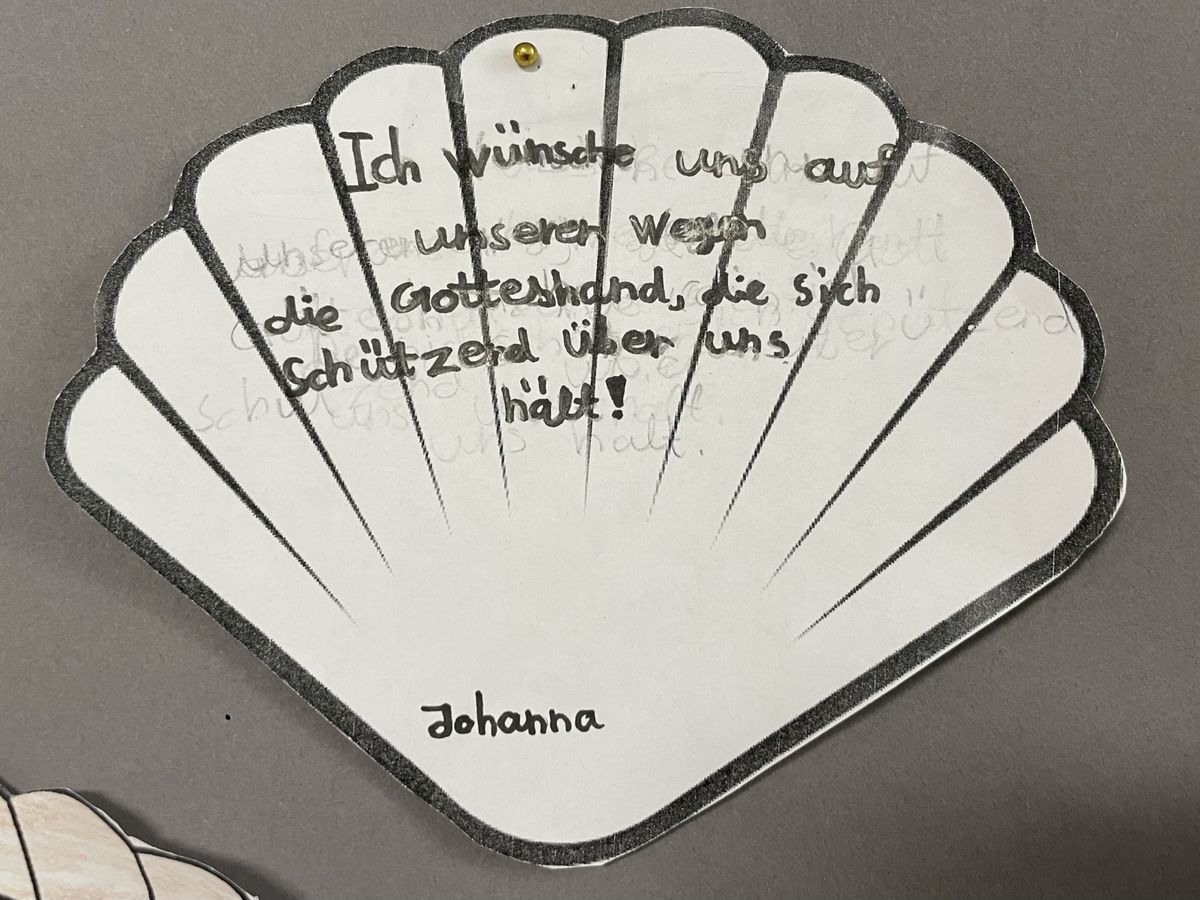 Ich wünsche uns auf
unserer Wegen
die Gotteshand, die sich
Schützend über uns
hält!
Johanna